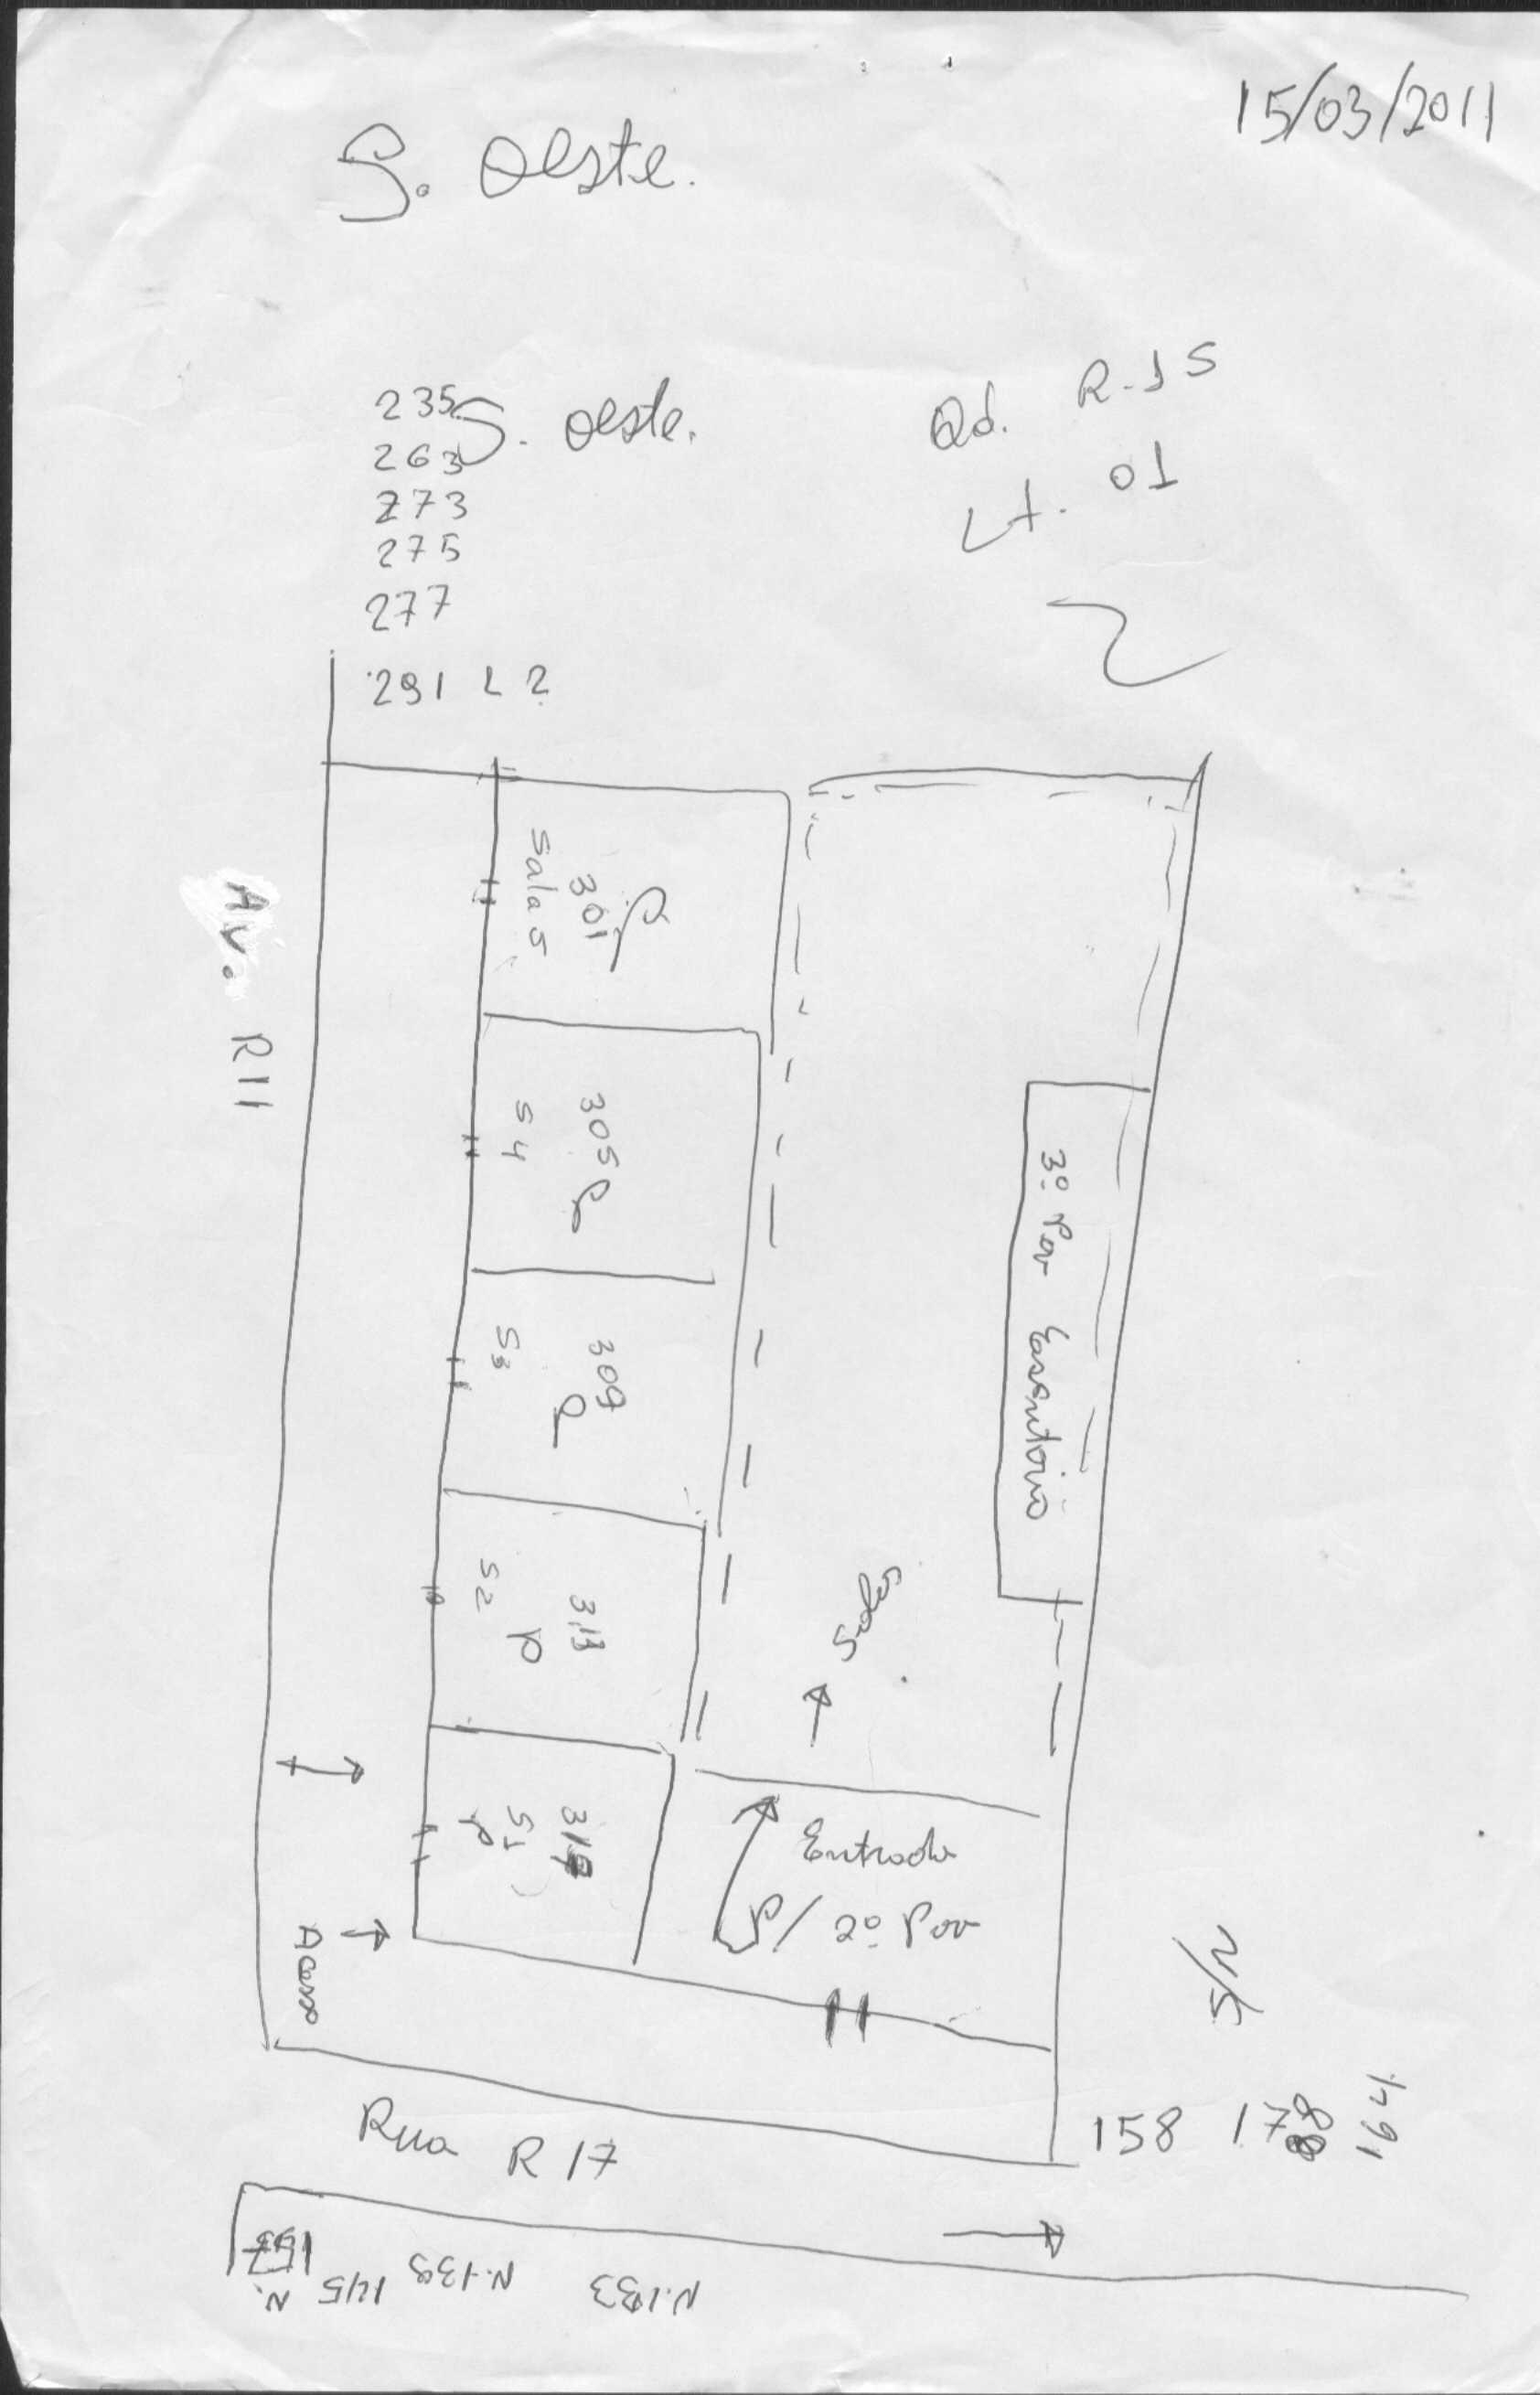 15/03/2011
S. Oeste.
235
S. Oeste.
263
273
275
277
291 L 2
Qd. R-15
Lt. 01
Av. R11
301
Sala 5
305
S4
309
S3
313
S2
S1
3º Pav Escritório
Salas
Entrada
P/ 2º Pav
Acesso
S/N
158 178 164
Rua R 17
N. 157
145
N. 139
N. 133